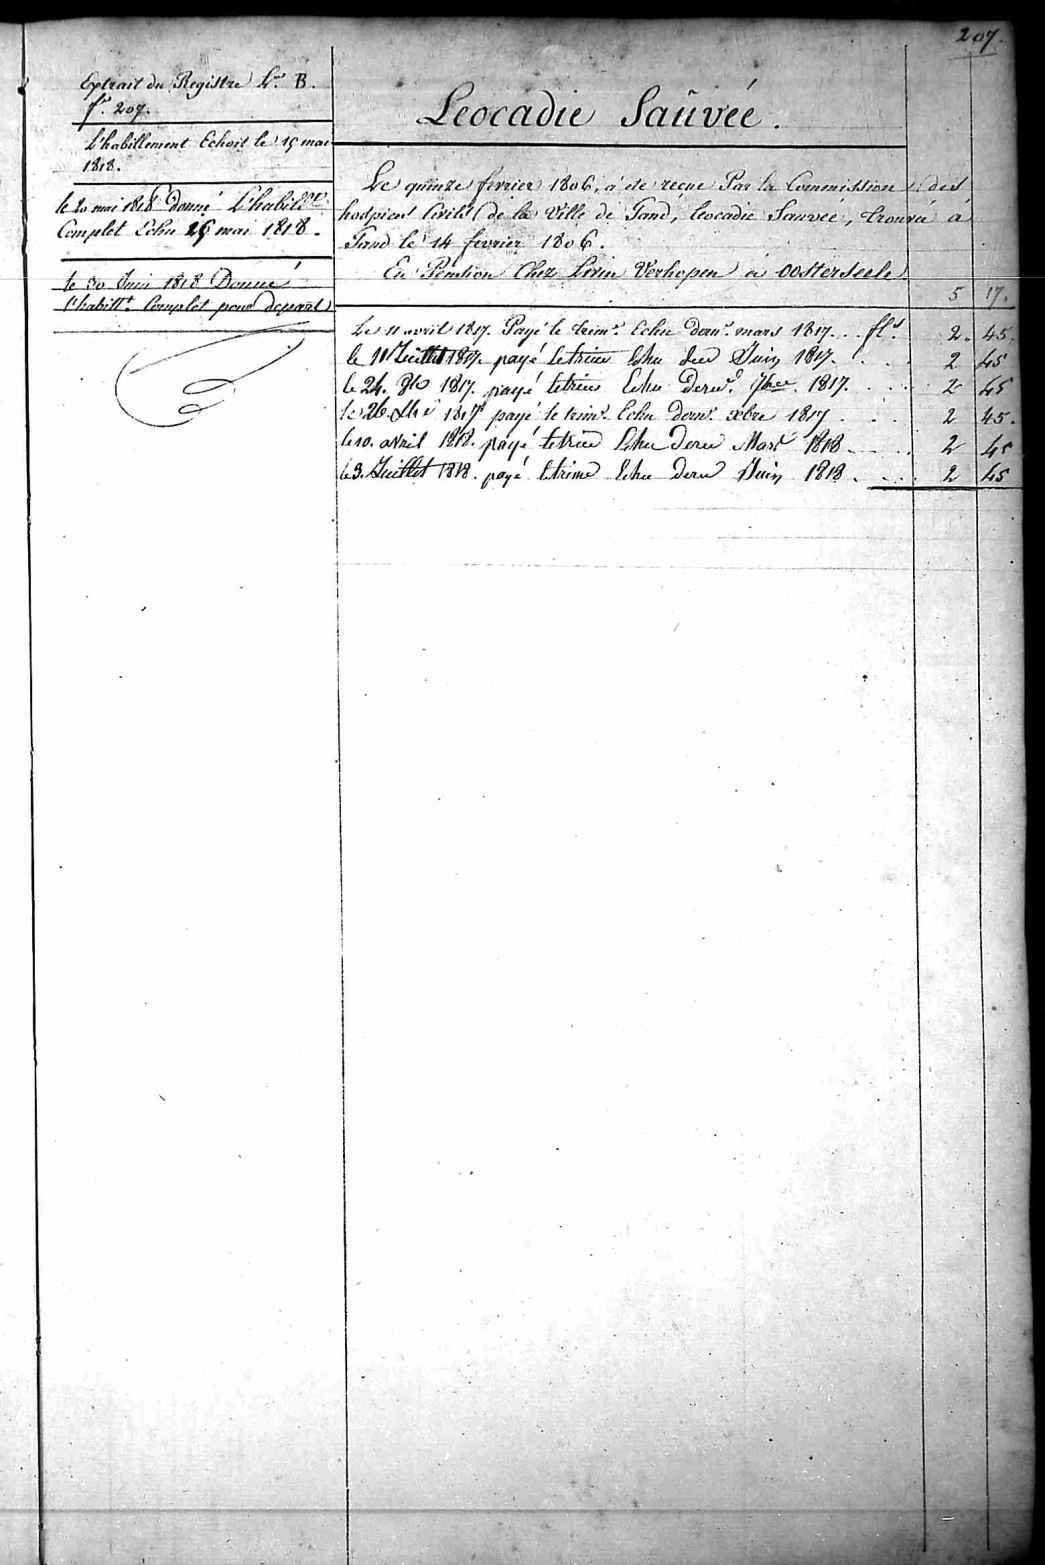 207.
Extrait du Registre Lra B.
fo. 207.
L'habillement Echoit le 15 mai
1818.
le 20 mai 1818 Donné L'habillmt
Complet Echu 15 mai 1818.
le 30 Juin 1818 Donné
l'habillt Complet pour depart
Leocadie Sauvée.
Le quinze fevrier 1806, à ete reçue Par la Commission des
hospices Civils, de la Ville de Gand, leocadie Sauvée, trouvée à
Gand le 14 fevrier 1806.
En Pension Chez Livin Verhogen à Oosterseele
5 17.
Le 11 avril 1817. Payé le trimre Echu dernr mars 1817. . fls 2. 45.
le 11 Juillet 1817. payé letrim Echu der Juin 1817. . . . 2 45
le 24. 1817. payé letrim Echu dernr 7bre 1817. . . . 2 45
le 26 1817 payé le trimr Echu dernr xbre 1817 . . . 2 45.
le 10. avril 1818. payé letrim Echu dern Mars 1818 . . . 2 45
le 3. Juillet 1818. payé letrime Echu dern Juin 1818 . . . 2 45